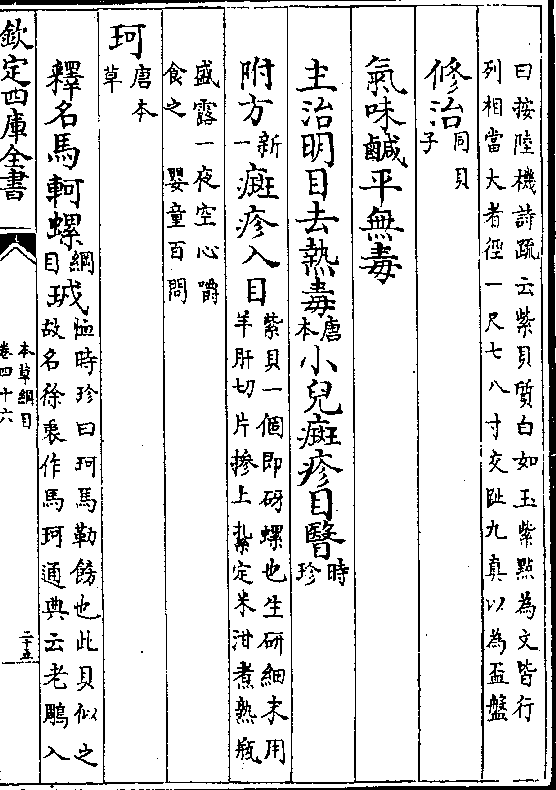 曰按陸機詩疏云紫貝質白如玉紫點為文皆行
列相當大者徑一尺七八寸交趾九真以為盃盤
修治同貝
子
氣味鹹平無毒
主治明目去熱毒唐
本小兒癍疹目翳時
珍
附方新
一癍疹入目紫貝一個即砑螺也生研細末用
羊肝切片摻上紮定米泔煮熟瓶
盛露一夜空心嚼
食之 嬰童百問
珂唐本
草
釋名馬軻螺綱
目珬恤時珍曰珂馬勒飾也此貝似之
故名徐表作馬珂通典云老鵰入
欽定四庫全書
本草綱目
卷四十六
二十五